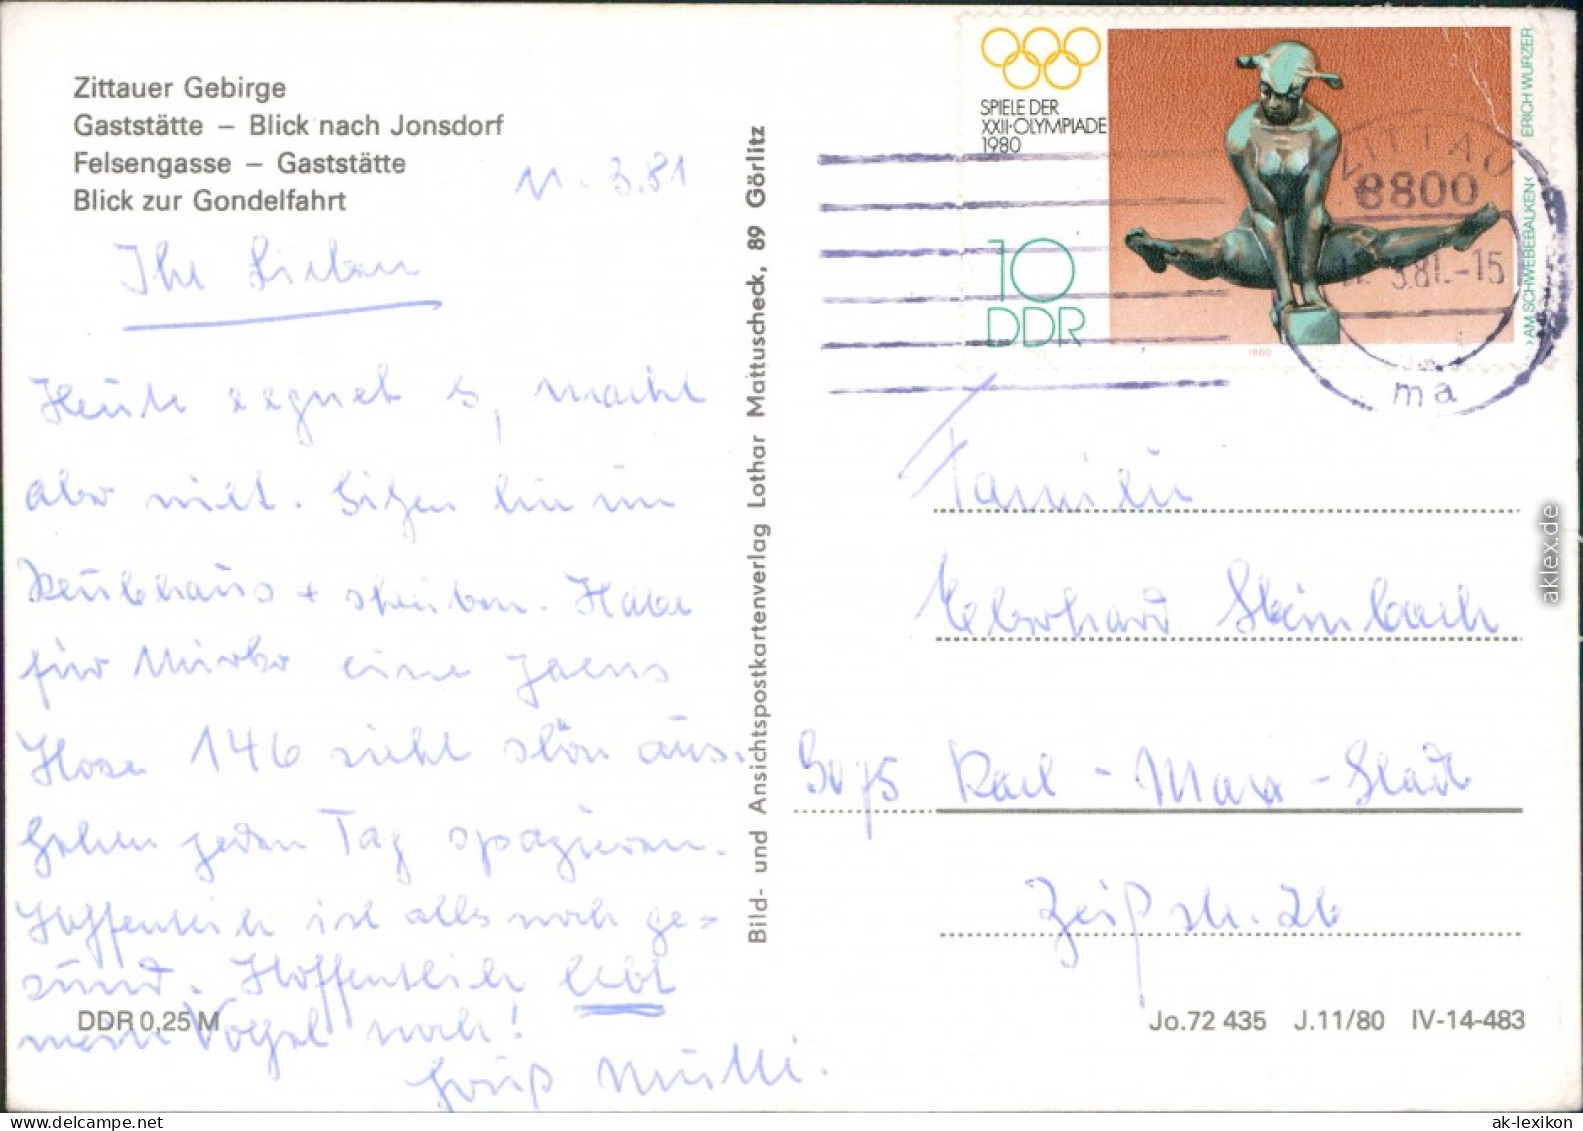 Zittauer Gebirge
Gaststätte – Blick nach Jonsdorf
Felsengasse – Gaststätte
Blick zur Gondelfahrt
11.3.81
Ihr Lieben
Heute regnet s, macht
aber nicht. Sitzen hier im
+ schreiben. Habe
für Mirko eine Jaens
Hose 146 sieht schön aus.
Gehen jeden Tag spazieren.
Hoffentlich ist alles noch ge-
sund. Hoffentlich lebt
mein Vogel noch!
Gruß Mutti.
DDR 0,25 M
Bild- und Ansichtspostkartenverlag Lothar Mattuscheck, 89 Görlitz
SPIELE DER
XXII·OLYMPIADE
1980
10
DDR
1980
›AM SCHWEBEBALKEN‹ ERICH WURZER
ZITTAU
8800
11. 3.81.-15
ma
Familie
Eberhard Steinbach
9075 Karl-Marx-Stadt
Zeißstr. 26
Jo.72 435 J.11/80 IV-14-483
aklex.de
ak-lexikon